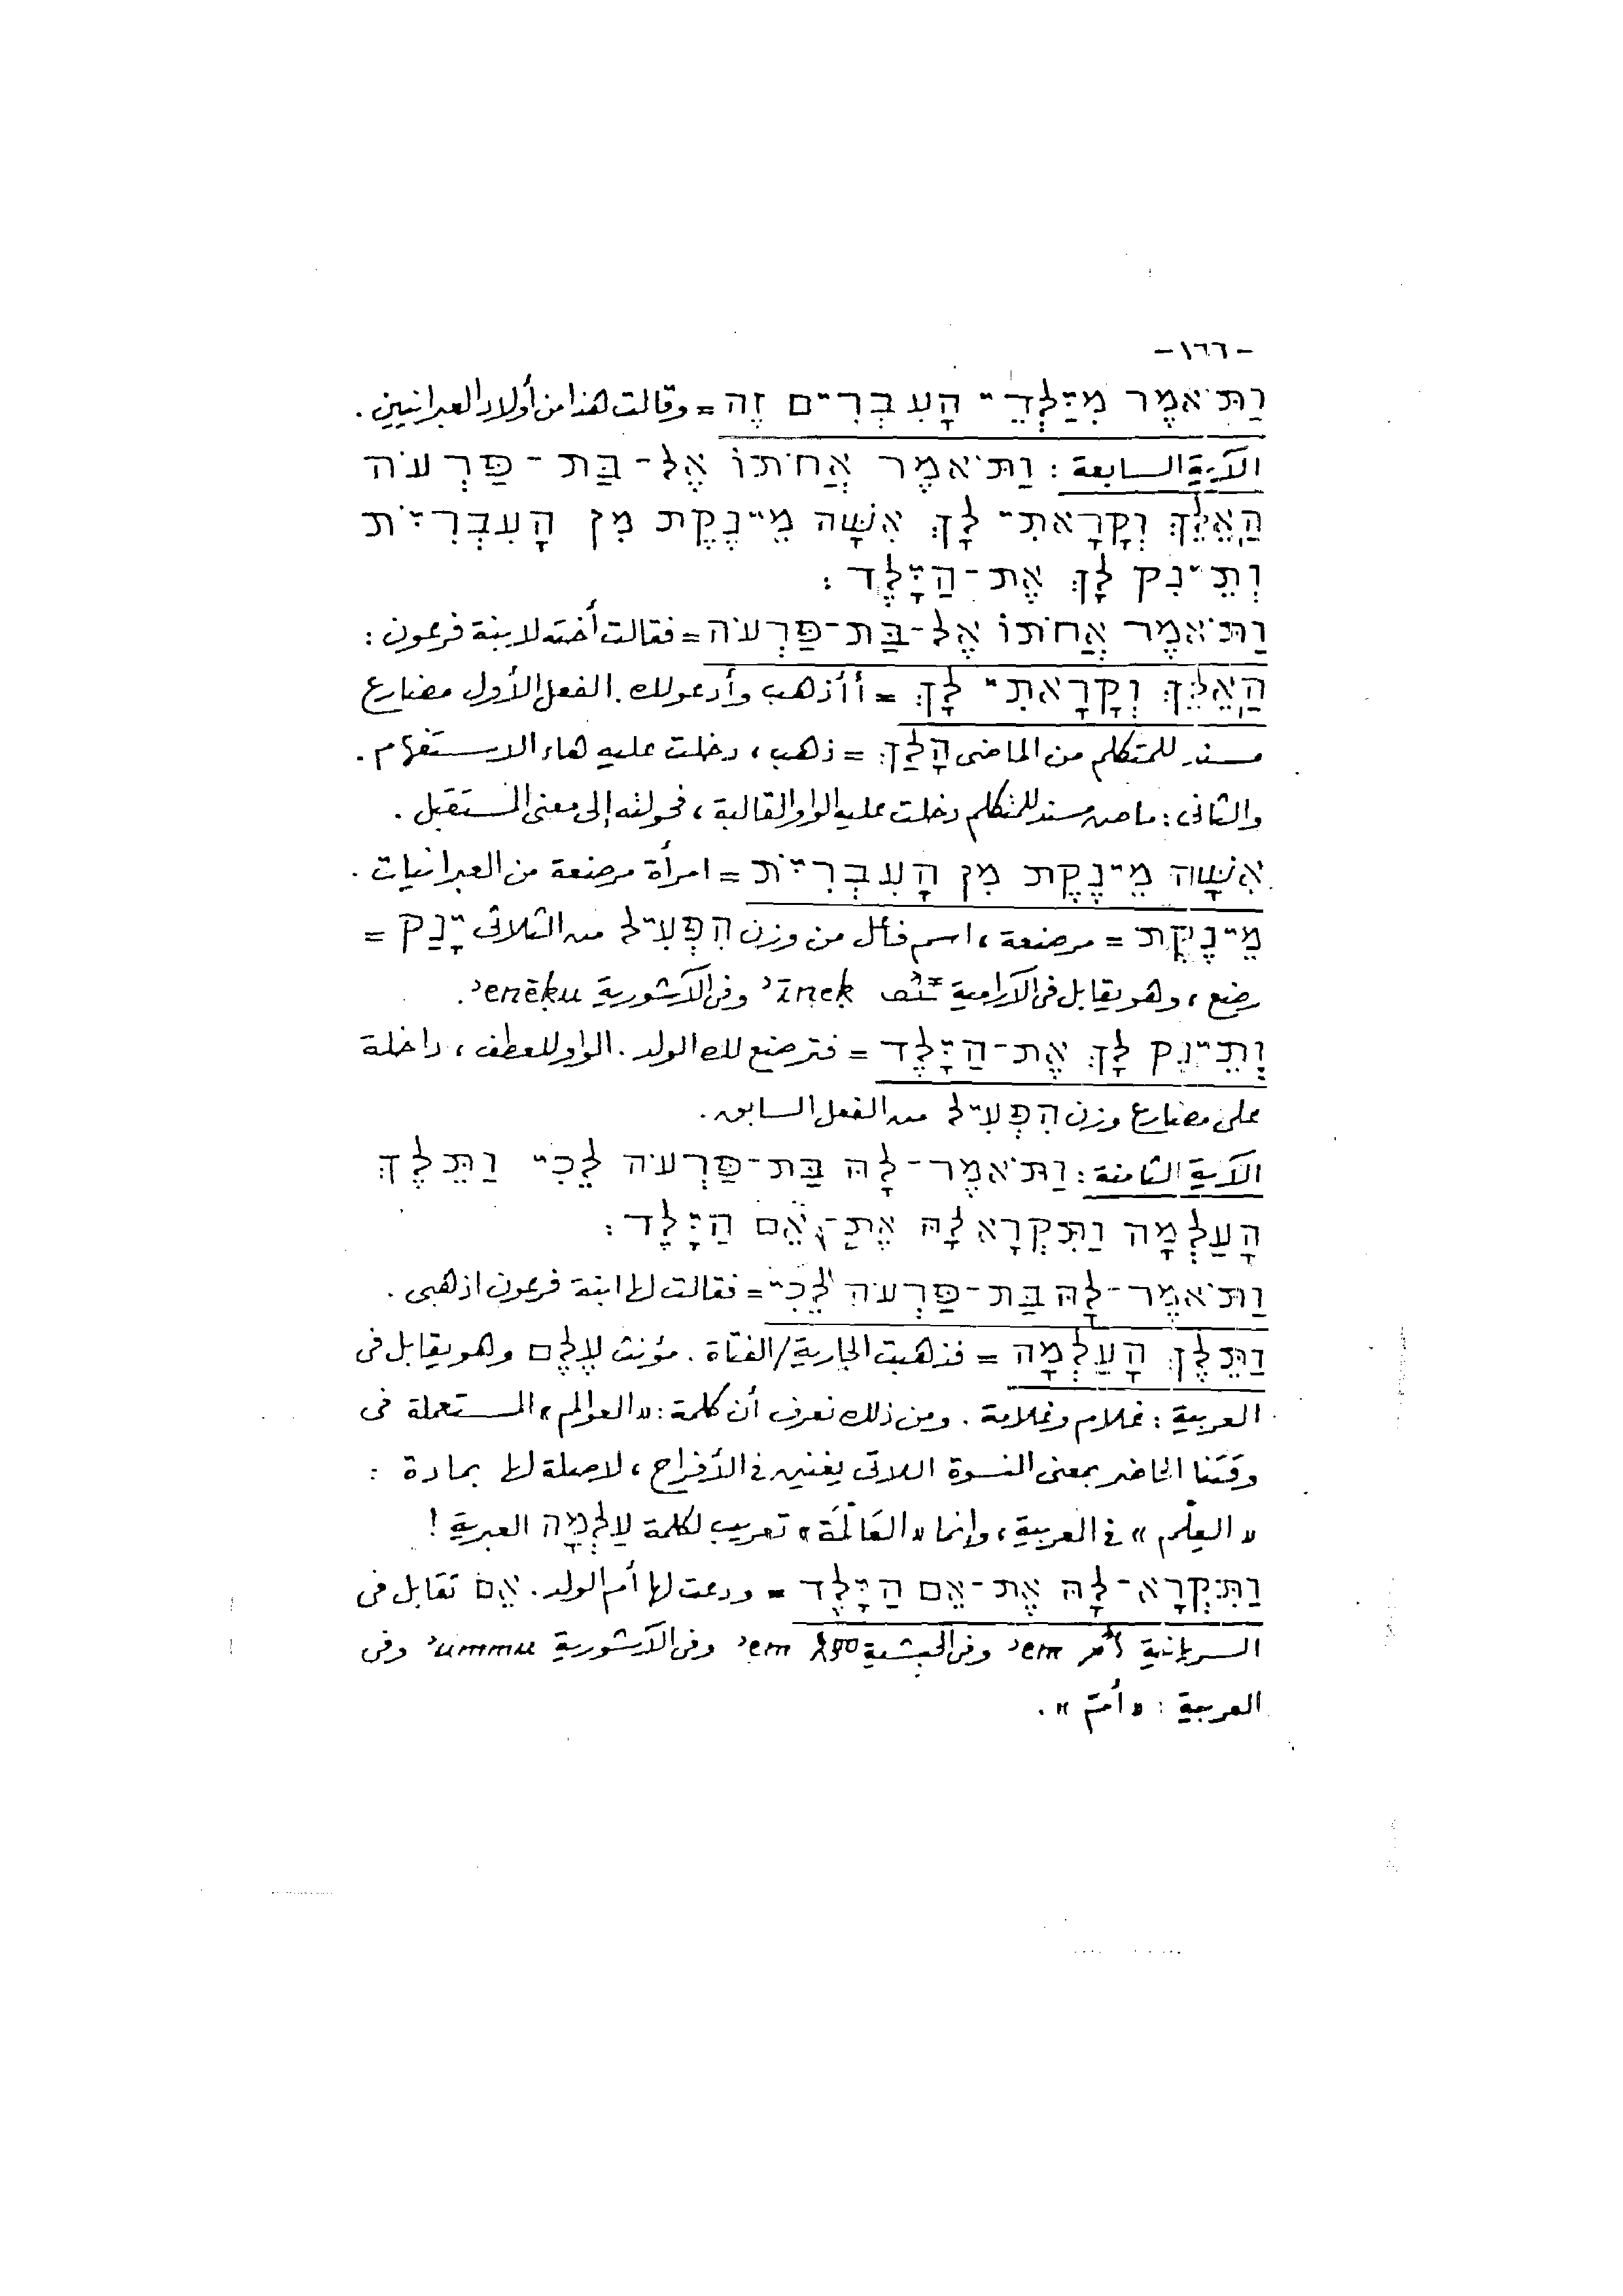 -١٦٦-
וַתֹּאמֶר מִיַּלְדֵי הָעִבְרִים זֶה = وقالت هذا من أولاد العبرانيين .
الآية السابعة : וַתֹּאמֶר אֲחֹתוֹ אֶל-בַּת-פַּרְעֹה
הַאֵלֵךְ וְקָרָאתִי לָךְ אִשָּׁה מֵינֶקֶת מִן הָעִבְרִיֹּת
וְתֵינִק לָךְ אֶת-הַיָּלֶד :
וַתֹּאמֶר אֲחֹתוֹ אֶל-בַּת-פַּרְעֹה = فقالت أخته لابنة فرعون :
הַאֵלֵךְ וְקָרָאתִי לָךְ = أأذهب وأدعو لك . الفعل الأول مضارع
مسند للمتكلم من الماضى הָלַךְ = ذهب ، دخلت عليه هاء الاستفهام .
والثانى : ماض مسند للمتكلم دخلت عليه الواو القالبة ، فحولته إلى معنى المستقبل .
אִשָּׁה מֵינֶקֶת מִן הָעִבְרִיֹּת = امرأة مرضعة من العبرانيات .
מֵינֶקֶת = مرضعة ، اسم فاعل من وزن הִפְעִיל من الثلاثى יָנַק =
رضع ، وهو يقابل فى الآرامية ܝܢܩ ʾīneḳ وفى الآشورية ʾenēḳu .
וְתֵינִק לָךְ אֶת-הַיָּלֶד = فترضع لك الولد . الواو للعطف ، داخلة
على مضارع وزن הִפְעִיל من الفعل السابق .
الآية الثامنة : וַתֹּאמֶר-לָהּ בַּת-פַּרְעֹה לֵכִי וַתֵּלֶךְ
הָעַלְמָה וַתִּקְרָא לָהּ אֶת-אֵם הַיָּלֶד :
וַתֹּאמֶר-לָהּ בַּת-פַּרְעֹה לֵכִי = فقالت لها ابنة فرعون اذهبى .
וַתֵּלֶךְ הָעַלְמָה = فذهبت الجارية/الفتاة . مؤنث עֶלֶם وهو يقابل فى
العربية : غلام وغلامة . ومن ذلك نعرف أن كلمة : « العوالم » المستعملة فى
وقتنا الحاضر بمعنى النسوة اللاتى يغنين فى الأفراح ، لا صلة لها بمادة :
« العِلْم » فى العربية ، وإنما « العَالْمَة » تعريب لكلمة עַלְמָה العبرية !
וַתִּקְרָא-לָהּ אֶת-אֵם הַיָּלֶד = ودعت لها أم الولد . אֵם تقابل فى
السريانية ܐܡ ʾem وفى الحبشية እም ʾem وفى الآشورية ʾummu وفى
العربية : « أمّ » .